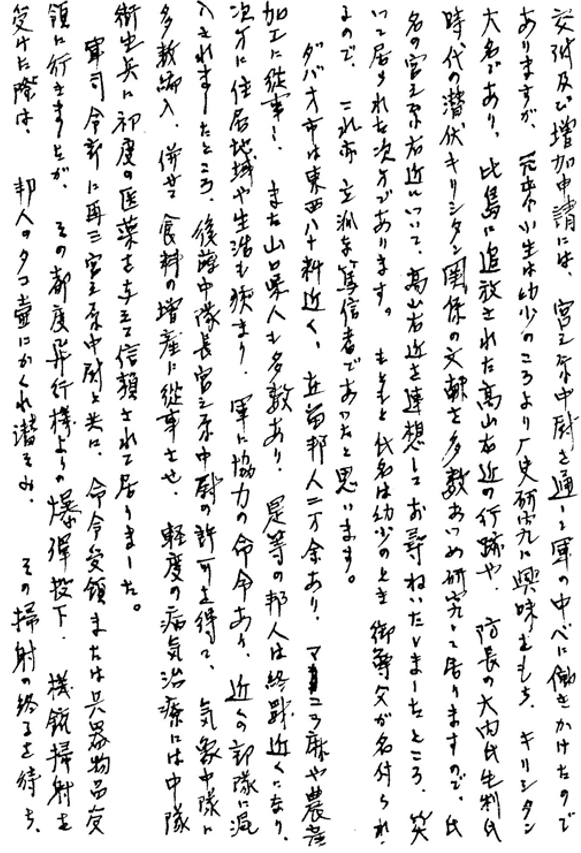 交附及び増加申請には、宮之原中尉を通して軍の中へに働きかけたので
ありますが、元来小生は幼少のころより歴史研究に興味をもち、キリシタン
大名であり、比島に追放された高山右近の行跡や、防長の大内氏毛利氏
時代の潜伏キリシタン関係の文献を多数あつめ研究して居りますので、氏
名の宮之原右近について、高山右近を連想してお尋ねいたしましたところ、笑
いて居られた次第であります。もともと氏名は幼少のとき御尊父が名付られた
もので、これ亦立派な篤信者であったと思います。
ダバオ市は東西八十粁近く、在留邦人二万余あり、マニラ麻や農産
加工に従事し、また山口県人も多数あり、是等の邦人は終戦近くになり、
次第に住居地域や生活も狭まり、軍に協力の命令あり、近くの部隊に混
入されましたところ、後藤中隊長宮之原中尉の許可を得て、気象中隊に
多数編入、併せて食料の増産に従事させ、軽度の病気治療には中隊
衛生兵に初度の医薬を与えて信頼されて居りました。
軍司令部に再三宮之原中尉と共に、命令受領または兵器物品受
領に行きましたが、その都度飛行機よりの爆弾投下、機銃掃射を
受けた際は、邦人のタコ壷にかくれ潜そみ、その掃射の終るを待ち、